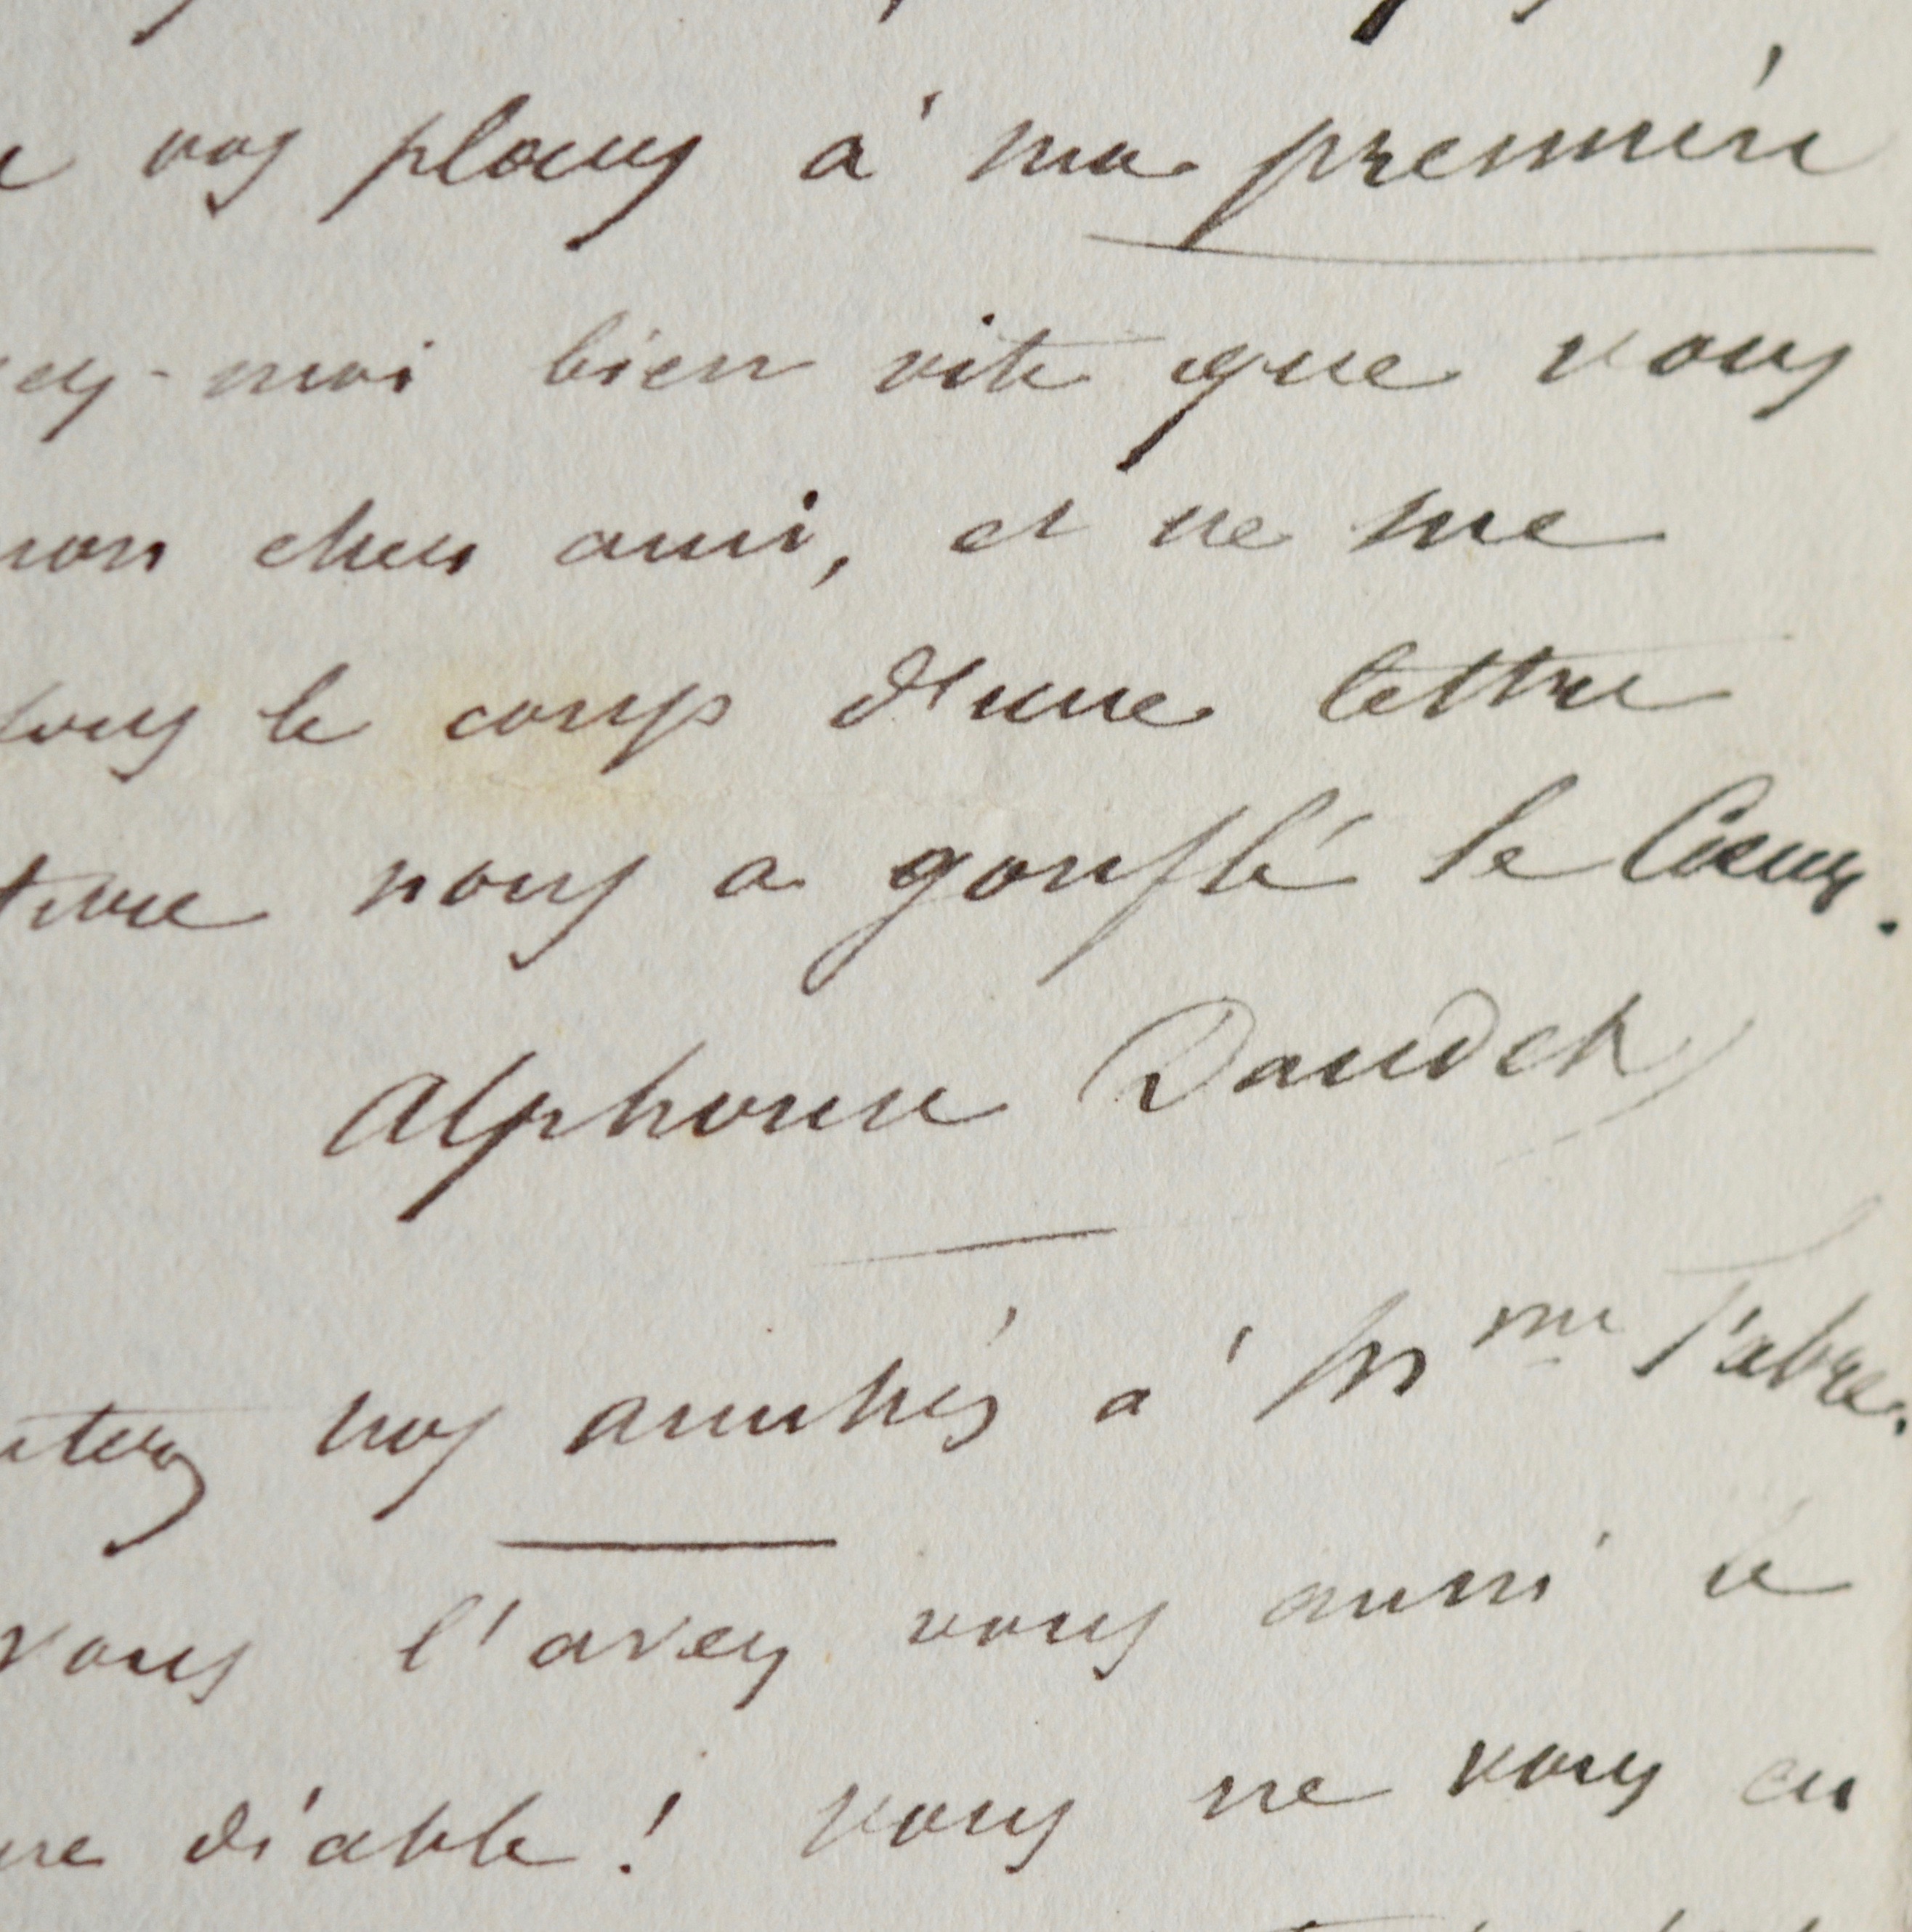 vos places à ma première
ez-moi bien vite que vous
mon cher ami, et ne me
sous le coup d'une lettre
nous a gonflé le Cœur.
Alphonse Daudet
nos amitiés à Mme Fabre.
vous l'avez vous aussi le
diable ! vous ne vous en